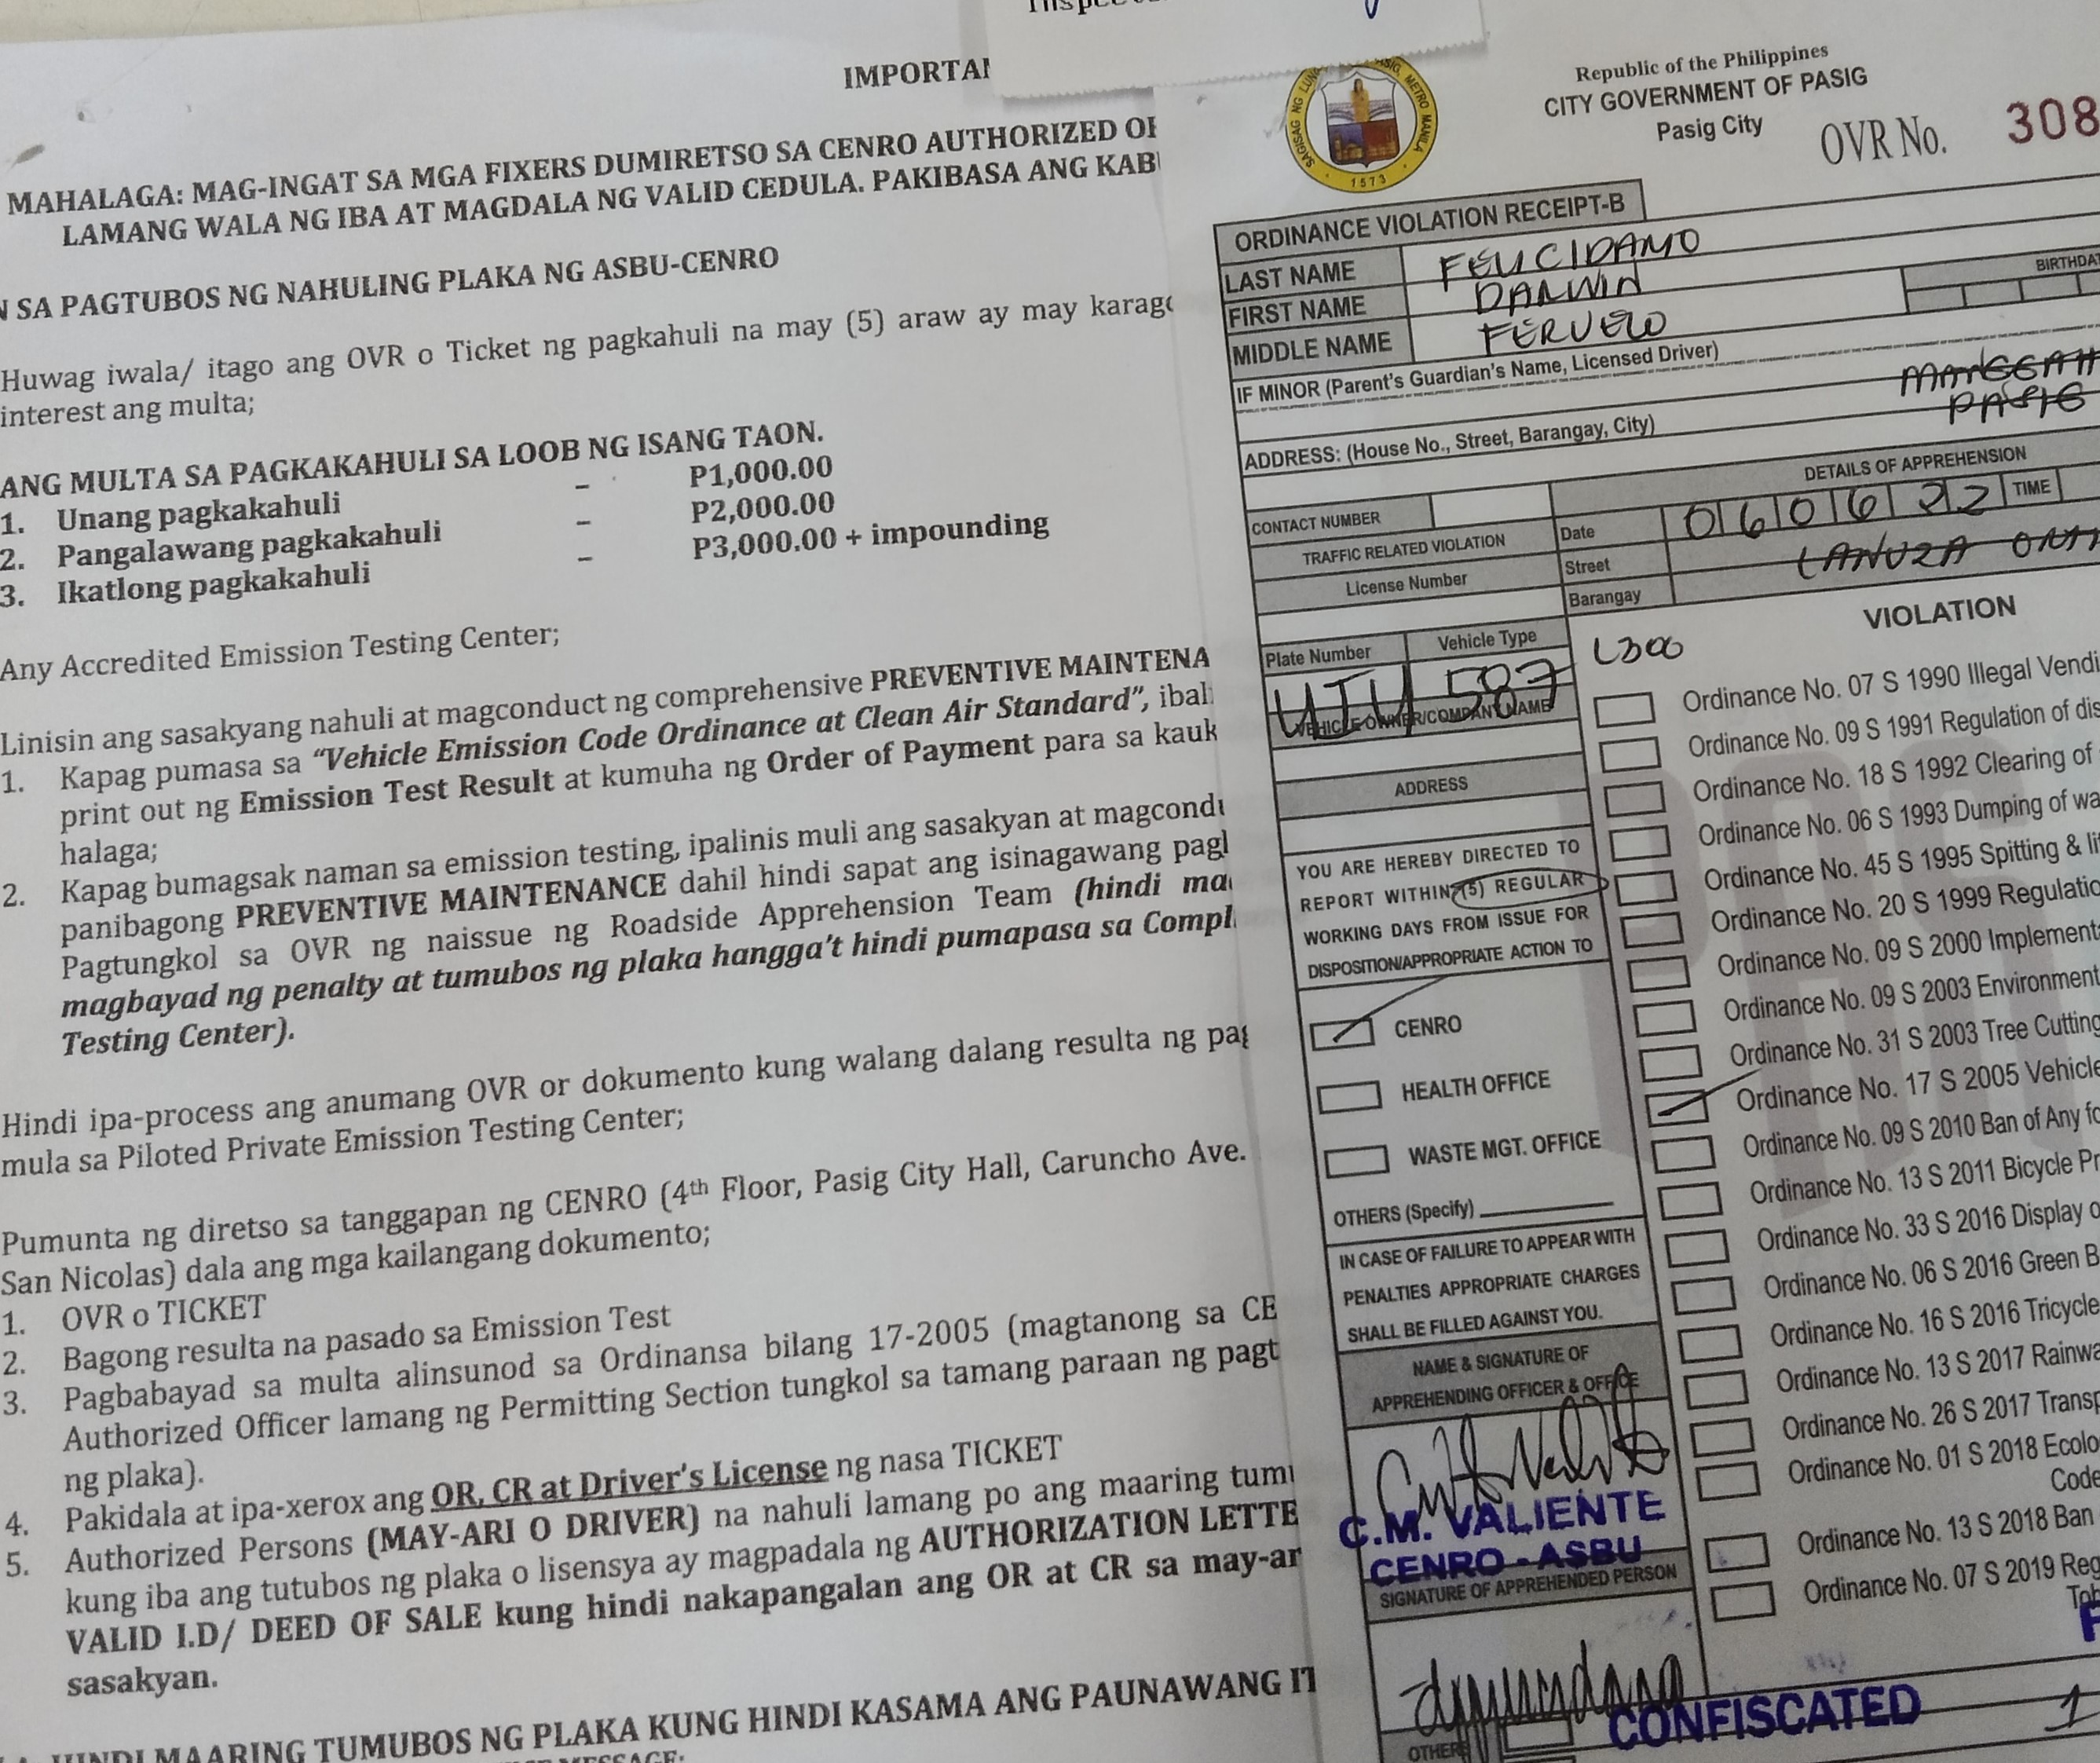 IMPORTA
MAHALAGA: MAG-INGAT SA MGA FIXERS DUMIRETSO SA CENRO AUTHORIZED
LAMANG WALA NG IBA AT MAGDALA NG VALID CEDULA. PAKIBASA ANG
SA PAGTUBOS NG NAHULING PLAKA NG ASBU-CENRO
Huwag iwala/ itago ang OVR o Ticket ng pagkahuli na may (5) araw ay may
interest ang multa;
ANG MULTA SA PAGKAKAHULI SA LOOB NG ISANG TAON.
1. Unang pagkakahuli - P1,000.00
2. Pangalawang pagkakahuli - P2,000.00
3. Ikatlong pagkakahuli - P3,000.00 + impounding
Any Accredited Emission Testing Center;
Linisin ang sasakyang nahuli at magconduct ng comprehensive PREVENTIVE MAINTENA
1. Kapag pumasa sa "Vehicle Emission Code Ordinance at Clean Air Standard", ibal
print out ng Emission Test Result at kumuha ng Order of Payment para sa kauk
halaga;
2. Kapag bumagsak naman sa emission testing, ipalinis muli ang sasakyan at magcond
panibagong PREVENTIVE MAINTENANCE dahil hindi sapat ang isinagawang pag
Pagtungkol sa OVR ng naissue ng Roadside Apprehension Team (hindi ma
magbayad ng penalty at tumubos ng plaka hangga't hindi pumapasa sa Compl
Testing Center).
Hindi ipa-process ang anumang OVR or dokumento kung walang dalang resulta ng pag
mula sa Piloted Private Emission Testing Center;
Pumunta ng diretso sa tanggapan ng CENRO (4th Floor, Pasig City Hall, Caruncho Ave.
San Nicolas) dala ang mga kailangang dokumento;
1. OVR o TICKET
2. Bagong resulta na pasado sa Emission Test
3. Pagbabayad sa multa alinsunod sa Ordinansa bilang 17-2005 (magtanong sa CE
Authorized Officer lamang ng Permitting Section tungkol sa tamang paraan ng pagt
ng plaka).
4. Pakidala at ipa-xerox ang OR, CR at Driver's License ng nasa TICKET
5. Authorized Persons (MAY-ARI O DRIVER) na nahuli lamang po ang maaring tum
kung iba ang tutubos ng plaka o lisensya ay magpadala ng AUTHORIZATION LETTE
VALID I.D/ DEED OF SALE kung hindi nakapangalan ang OR at CR sa may-ar
sasakyan.
HINDI MAARING TUMUBOS NG PLAKA KUNG HINDI KASAMA ANG PAUNAWANG IT
MESSAGE:
METRO MANILA
1573
Republic of the Philippines
CITY GOVERNMENT OF PASIG
Pasig City
OVR No. 308
ORDINANCE VIOLATION RECEIPT-B
LAST NAME FELICIDAMO
FIRST NAME DARWIN
MIDDLE NAME FERUELO
BIRTHDAT
IF MINOR (Parent's Guardian's Name, Licensed Driver)
MANGGAH
PASIG
ADDRESS: (House No., Street, Barangay, City)
DETAILS OF APPREHENSION
CONTACT NUMBER
Date 060622 TIME
TRAFFIC RELATED VIOLATION
Street LANUZA
License Number
Barangay
VIOLATION
Plate Number Vehicle Type
L300
UIU 587
VEHICLE OWNER/COMPANY NAME
ADDRESS
YOU ARE HEREBY DIRECTED TO
REPORT WITHIN (5) REGULAR
WORKING DAYS FROM ISSUE FOR
DISPOSITION/APPROPRIATE ACTION TO
CENRO
HEALTH OFFICE
WASTE MGT. OFFICE
OTHERS (Specify)
IN CASE OF FAILURE TO APPEAR WITH
PENALTIES APPROPRIATE CHARGES
SHALL BE FILLED AGAINST YOU.
NAME & SIGNATURE OF
APPREHENDING OFFICER & OFFICE
C.M. VALIENTE
CENRO - ASBU
SIGNATURE OF APPREHENDED PERSON
Ordinance No. 07 S 1990 Illegal Vendi
Ordinance No. 09 S 1991 Regulation of dis
Ordinance No. 18 S 1992 Clearing of
Ordinance No. 06 S 1993 Dumping of wa
Ordinance No. 45 S 1995 Spitting & li
Ordinance No. 20 S 1999 Regulatio
Ordinance No. 09 S 2000 Implement
Ordinance No. 09 S 2003 Environment
Ordinance No. 31 S 2003 Tree Cutting
Ordinance No. 17 S 2005 Vehicle
Ordinance No. 09 S 2010 Ban of Any fo
Ordinance No. 13 S 2011 Bicycle Pr
Ordinance No. 33 S 2016 Display o
Ordinance No. 06 S 2016 Green B
Ordinance No. 16 S 2016 Tricycle
Ordinance No. 13 S 2017 Rainwa
Ordinance No. 26 S 2017 Transp
Ordinance No. 01 S 2018 Ecolo
Code
Ordinance No. 13 S 2018 Ban
Ordinance No. 07 S 2019 Reg
Tob
CONFISCATED
OTHER
1